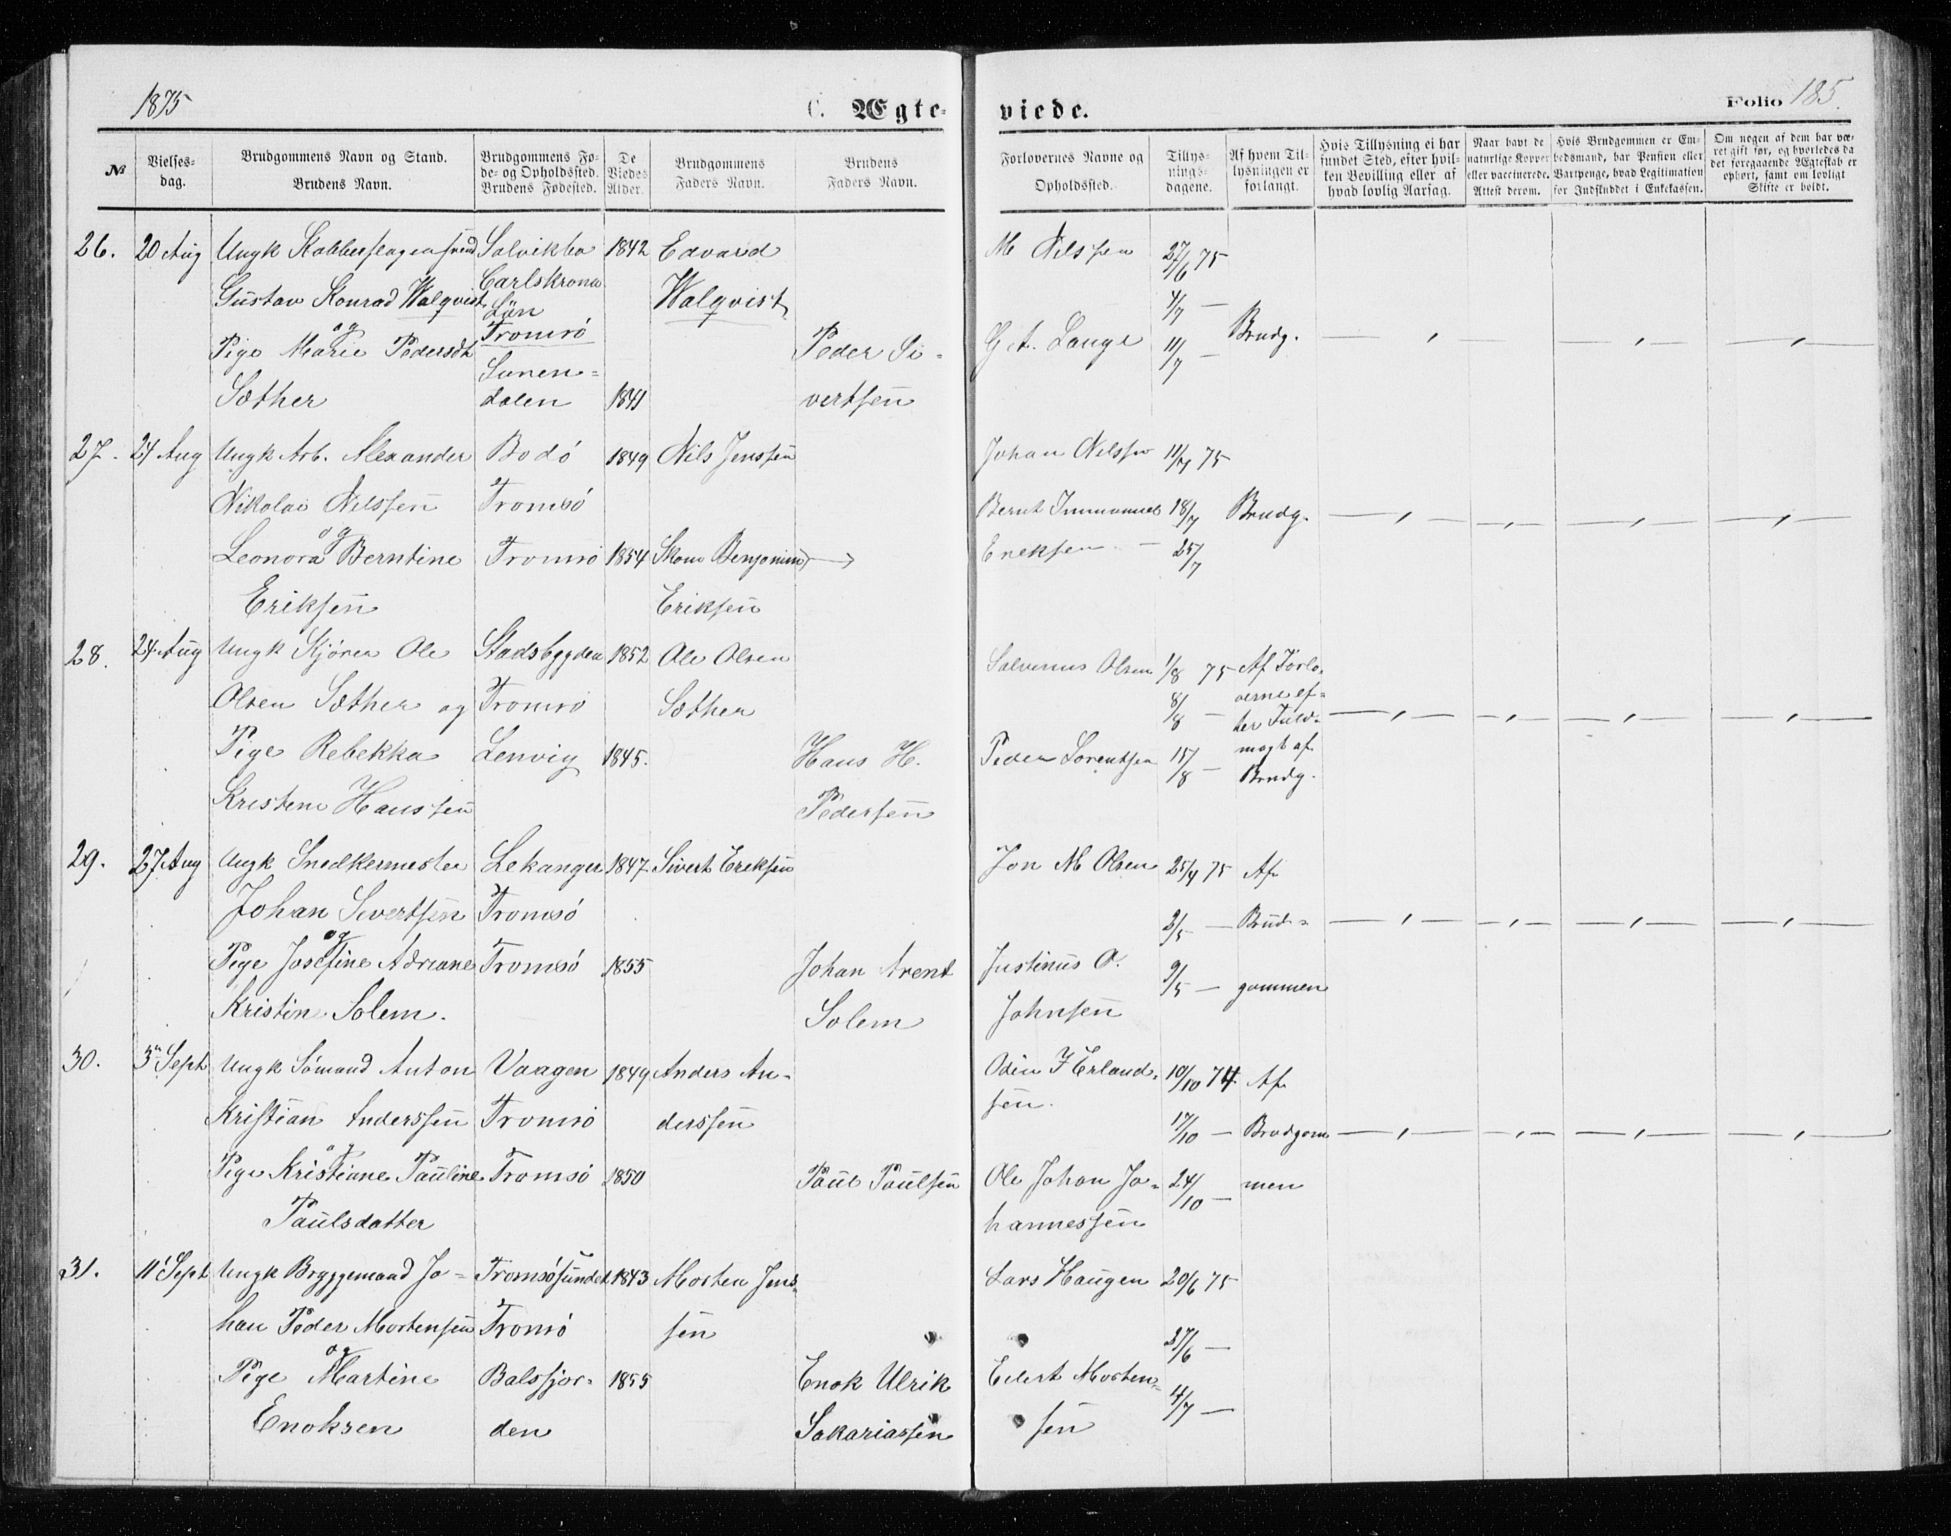 1875
C. Ægte-
viede.
Folio 185.
№
Vielses-
dag.
Brudgommens Navn og Stand.
Brudens Navn.
Brudgommens Fø-
de- og Opholdssted.
Brudens Fødested.
De
Viedes
Alder.
Brudgommens
Faders Navn.
Brudens
Faders Navn.
Forlovernes Navne og
Opholdssted.
Tillys-
nings-
dagene.
Af hvem Til-
lysningen er
forlangt.
Hvis Tillysning ei har
fundet Sted, efter hvil-
ken Bevilling eller af
hvad lovlig Aarsag.
Naar havt de
naturlige Kopper
eller vaccinerede.
Attest derom.
Hvis Brudgommen er Em-
bedsmand, har Pension eller
Vartpenge, hvad Legitimation
for Indskuddet i Enkekassen.
Om nogen af dem har væ-
ret gift før, og hvorledes da
det foregaaende Ægteskab er
ophørt, samt om lovligt
Skifte er holdt.
26. 20 Aug Ungk Kobberslagersvend Solvikbo 1842 Edvard M Nilssen 27/6 75
Gustav Konrad Walqvist Carlskrona Walqvist 4/7 —
og Län
Pige Marie Pedersdt Tromsö Peder Si- G A. Lange 11/7 — Brudg.
Sunen-
Sæther dalen 1841 vertsen
27. 24 Aug Ungk Arb. Alexander Bodö 1849 Nils Jenssen Johan Nilssen 11/7 75
Nikolai Nilssen Tromsö Bernt Immanuel 18/7 Brudg.
og
Leonora Berntine Tromsö 1854 Benjamin Eriksen — 25/7
Eriksen Eriksen
28. 24 Aug Ungk Ole Stadsbygden 1852 Ole Olsen Olsen 1/8 75 Af Forlo-
Olsen Sæther og Tromsö Sæther 8/8 — verne ef-
ter Fuld-
Pige Rebekka Lenvig 1845. Hans H. Peder Lorentsen 15/8 — magt af
Brudg.
Kristine Hanssen Pedersen
29. 27 Aug Ungk Snedkermester Lekanger 1847 Sivert Eriksen Jon M Olsen 25/4 75 Af
Johan Sivertsen Tromsö 2/5 — Brud-
og
Pige Josefine Adriane Tromsö 1855 Johan Arent Justinus O. 9/5 — gommen
Kristin Solem. Solem Johnsen
30. 3 Sept Ungk Sömand Anton Vaagen 1849 Anders An- Odin F Erland- 10/10 74 Af
Kristian Anderssen Tromsö derssen sen. 17/10 — Brudgom
og
Pige Kristiane Pauline Tromsö 1850 Paul Paulsen Ole Johan Jo- 24/10 — men
Paulsdatter hannessen
31. 11 Sept Ungk Bryggemand Jo- Tromsösundet 1843 Morten Jens- Lars Haugen 20/6 75
han Peder Mortensen Tromsö sen 27/6 —
og
Pige Martine Balsfjor- 1855 Enok Ulrik Eilert Morten- 4/7 —
Enoksen den Sakariassen sen